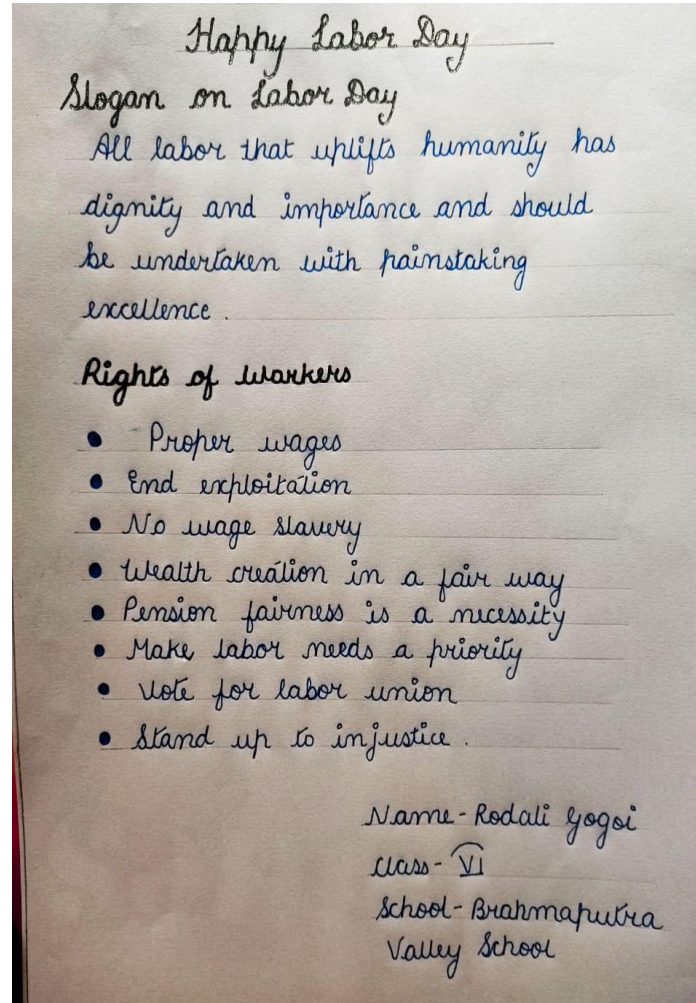 Happy Labor Day
Slogan on Labor Day
All labor that uplifts humanity has
dignity and importance and should
be undertaken with painstaking
excellence.
Rights of workers
• Proper wages
• End exploitation
• No wage slavery
• Wealth creation in a fair way
• Pension fairness is a necessity
• Make labor needs a priority
• Vote for labor union
• Stand up to injustice.
Name - Rodali Gogoi
Class - VI
School - Brahmaputra
Valley School